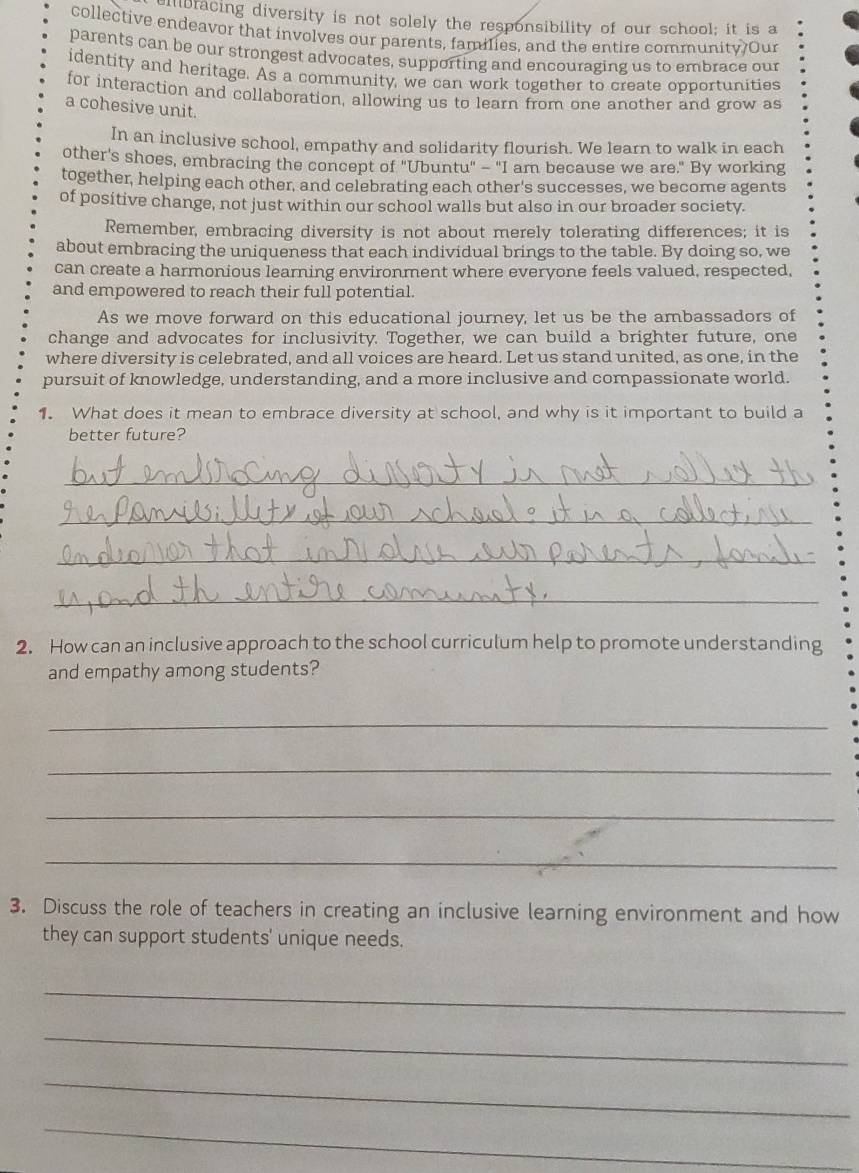 embracing diversity is not solely the responsibility of our school; it is a
collective endeavor that involves our parents, families, and the entire community. Our
parents can be our strongest advocates, supporting and encouraging us to embrace our
identity and heritage. As a community, we can work together to create opportunities
for interaction and collaboration, allowing us to learn from one another and grow as
a cohesive unit.
In an inclusive school, empathy and solidarity flourish. We learn to walk in each
other's shoes, embracing the concept of "Ubuntu" – "I am because we are." By working
together, helping each other, and celebrating each other's successes, we become agents
of positive change, not just within our school walls but also in our broader society.
Remember, embracing diversity is not about merely tolerating differences; it is
about embracing the uniqueness that each individual brings to the table. By doing so, we
can create a harmonious learning environment where everyone feels valued, respected,
and empowered to reach their full potential.
As we move forward on this educational journey, let us be the ambassadors of
change and advocates for inclusivity. Together, we can build a brighter future, one
where diversity is celebrated, and all voices are heard. Let us stand united, as one, in the
pursuit of knowledge, understanding, and a more inclusive and compassionate world.
1. What does it mean to embrace diversity at school, and why is it important to build a
better future?
but embracing is not the
of our school: it is a collective
endeavor that our parents, familie-
es, and th entire comunity.
2. How can an inclusive approach to the school curriculum help to promote understanding
and empathy among students?
3. Discuss the role of teachers in creating an inclusive learning environment and how
they can support students' unique needs.